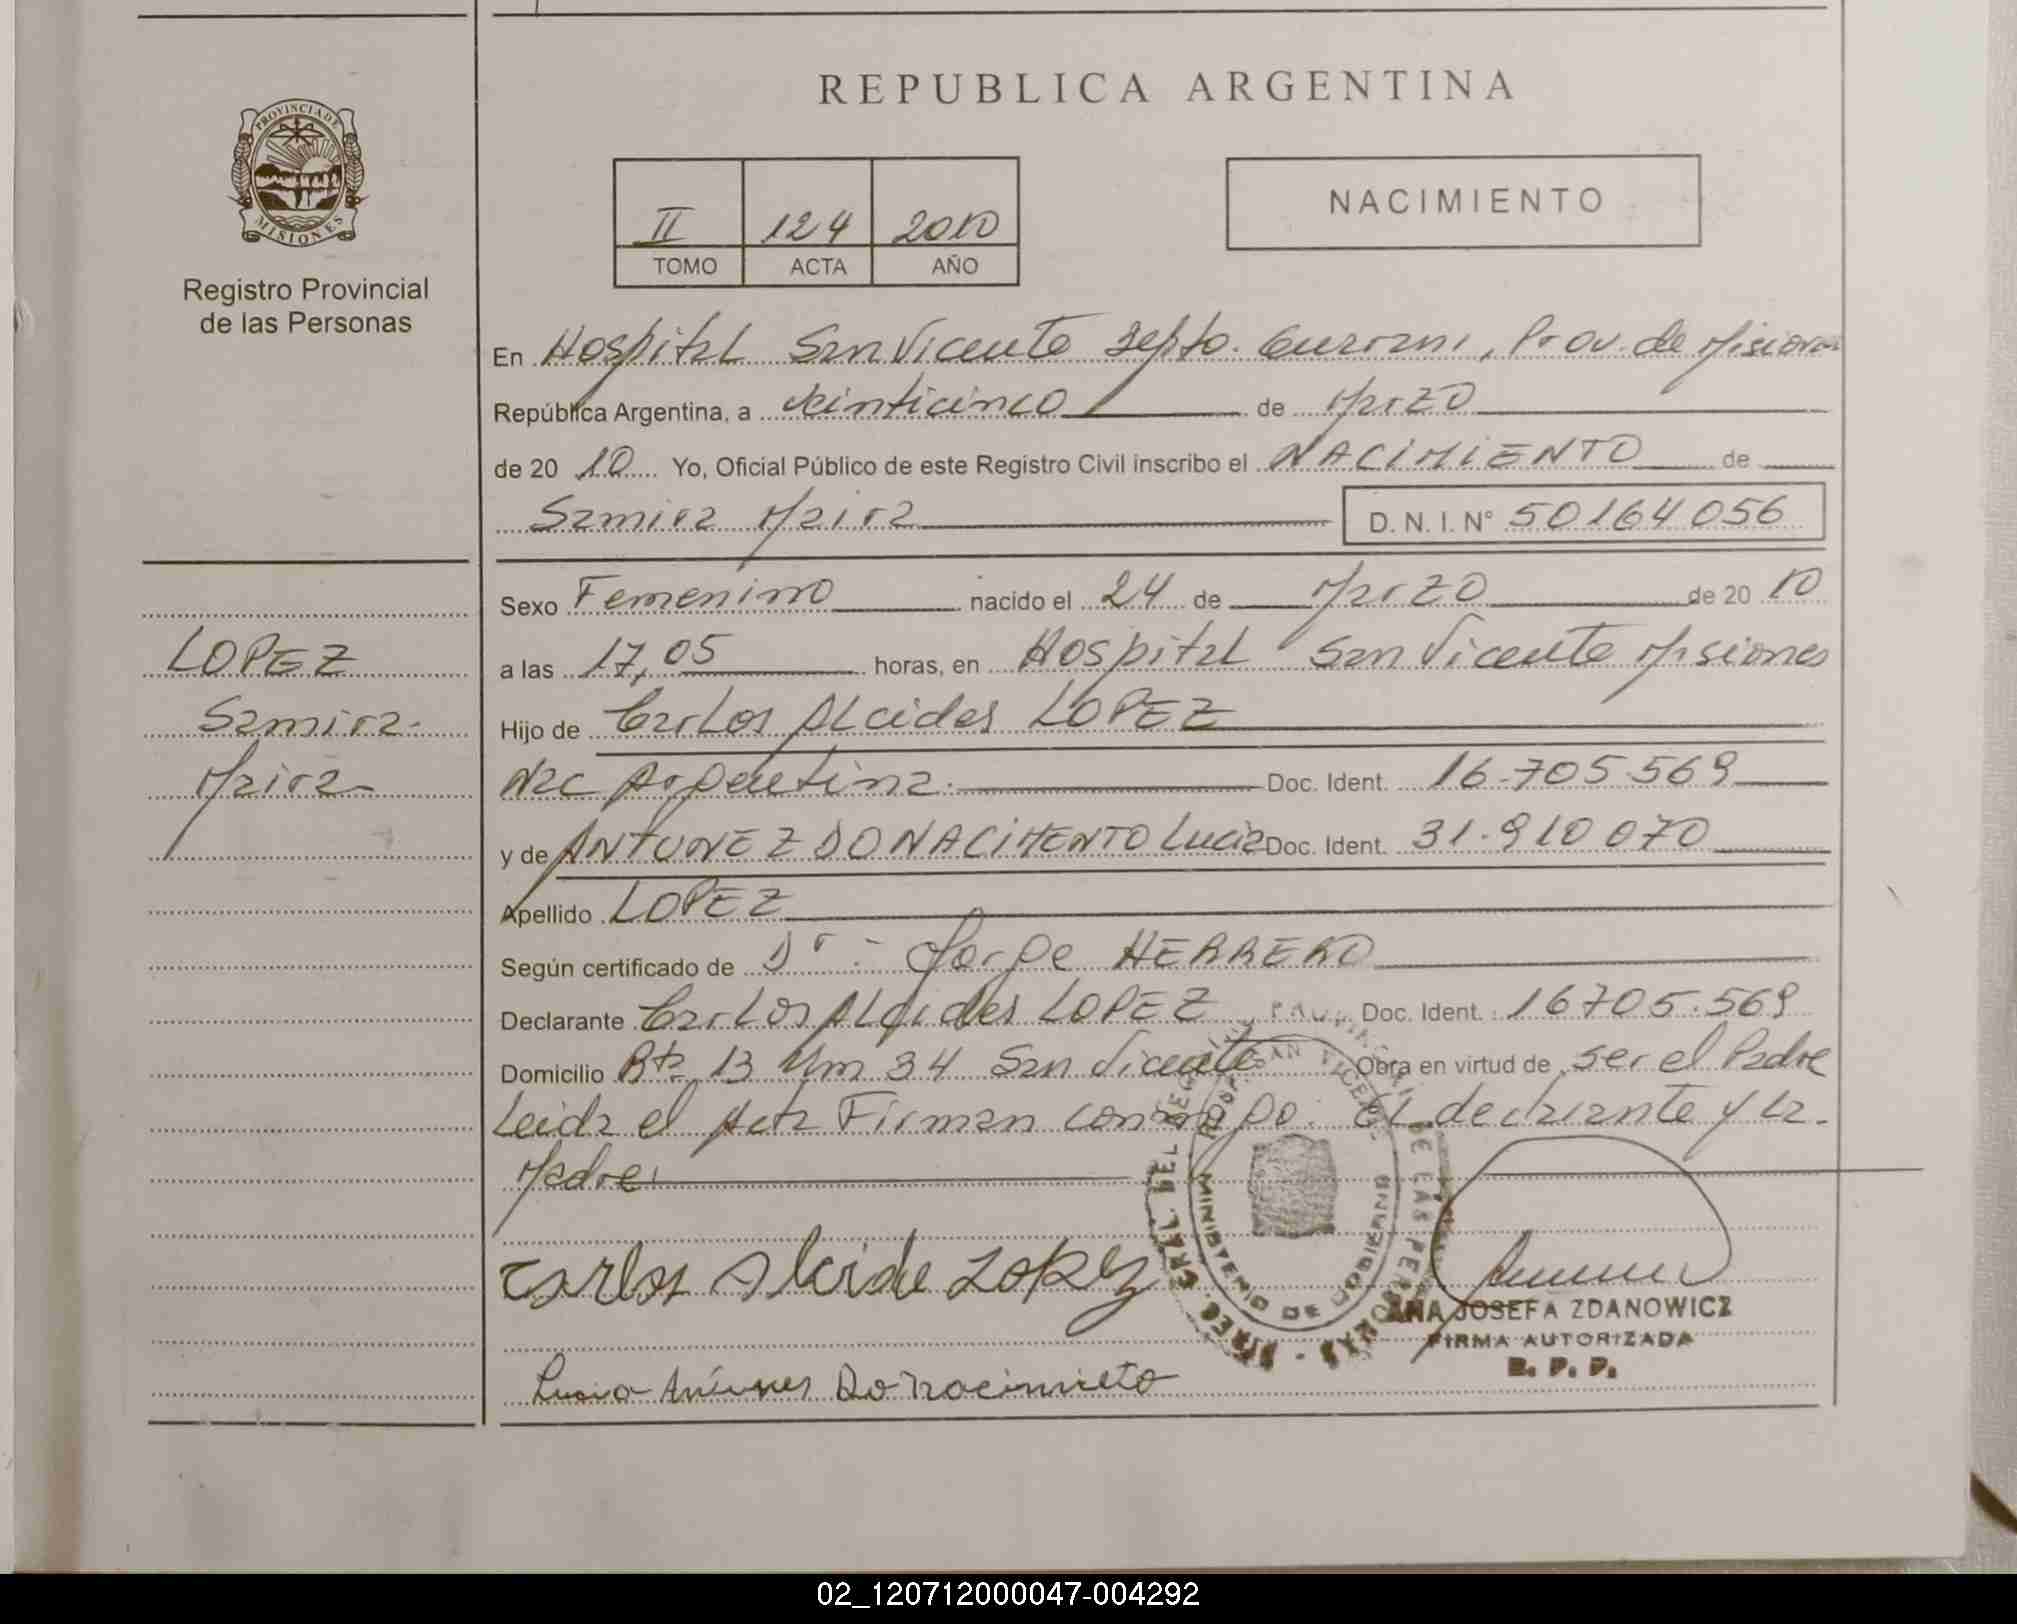 REPUBLICA ARGENTINA
PROVINCIA DE
MISIONES
Registro Provincial
de las Personas
II 124 2010
TOMO ACTA AÑO
NACIMIENTO
En Hospital San Vicente Depto. Guarani, Prov. de Misiones
República Argentina, a veinticinco de Marzo
de 20 10 Yo, Oficial Público de este Registro Civil inscribo el NACIMIENTO de
Samira Maira D. N. I. N° 50164056
Sexo Femenino nacido el 24 de Marzo de 20 10
a las 17,05 horas, en Hospital San Vicente Misiones
Hijo de Carlos Alcides LOPEZ
Nac Argentina. Doc. Ident. 16.705.569
y de ANTUNEZ DO NACIMENTO Lucia Doc. Ident. 31.910 070
Apellido LOPEZ
Según certificado de Dr. Jorge HERRERO
Declarante Carlos Alcides LOPEZ Doc. Ident. 16705.569
Domicilio Rta 13 Km 34 San Vicente Obra en virtud de ser el Padre
Leida el Acta Firman conmigo: el declarante y la
Madre
LOPEZ
Samira
Maira
Carlos Alcide Lopez
Lucia Antunes Do nacimieto
MINISTERIO DE GOBIERNO
ANA JOSEFA ZDANOWICZ
FIRMA AUTORIZADA
R. P. P.
02_120712000047-004292